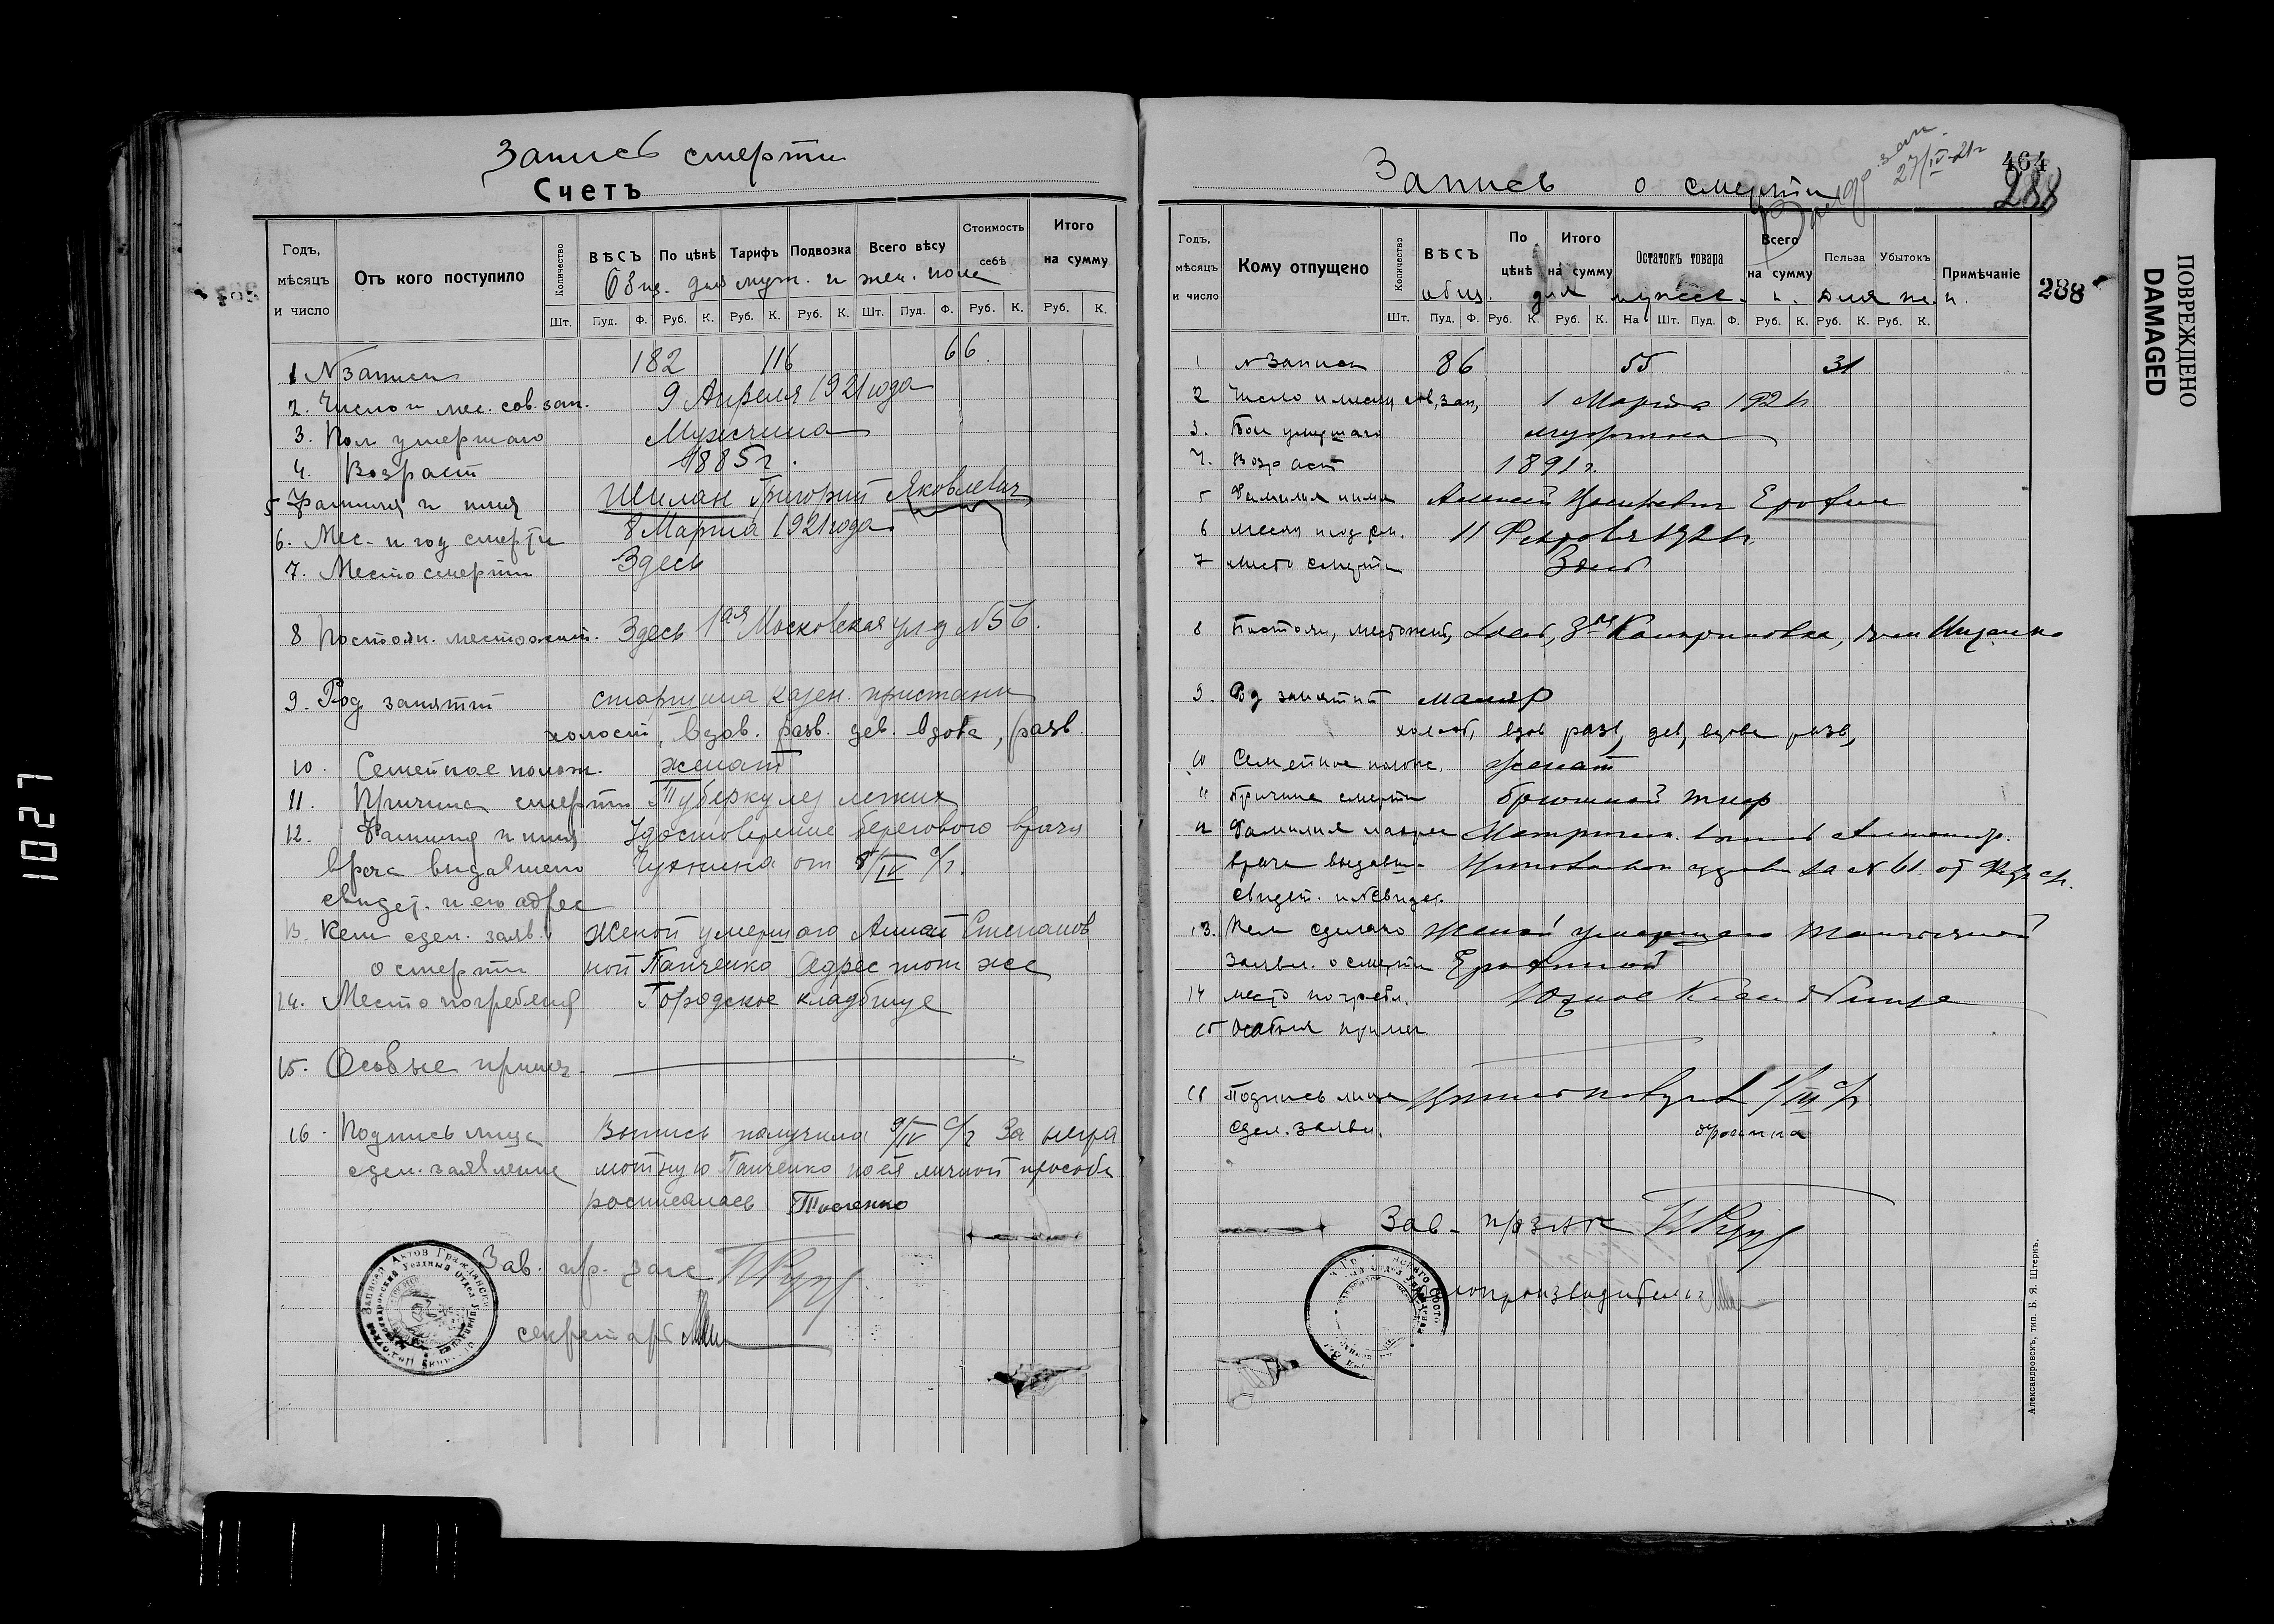 Запись смерти
Счетъ
Годъ, мѣсяцъ и число
Отъ кого поступило
Количество
ВѢСЪ
По цѣнѣ
Тарифъ
Подвозка
Всего вѣсу
Стоимость себѣ
Итого на сумму
Общ. для муж. и жен. пола
Шт. Пуд. Ф. Руб. К. Руб. К. Руб. К. Шт. Пуд. Ф. Руб. К. Руб. К.
1 N записи 182 116 66.
2. Число и мес. сов. зап. 9 Апреля 1921 года
3. Пол умершаго Мужчина
4. Возраст 1885 г.
5 Фамилия и имя Григорий Яковлевич
6. Мес. и год смерти 8 Марта 1921 года
7. Место смерти Здесь
8 Постоян. местожит. Здесь 1ая Московская ул д N 56.
9. Род занятий старшина казен. пристани
холост, вдов. разв. дев. вдова, разв.
10. Семейное полож. женат
11. Причина смерти Туберкулез легких
12. Фамилия и имя Удостоверение берегового врача
врача выдавшего от 8/IV с/г.
свидет. и его адрес
13. Кем сдел. заяв. Женой умершаго Анной Степанов
о смерти ной Панченко Адрес тот же
14. Место погребения Городское кладбище
15. Особые примеч.
16. Подпись лица Выпись получила 9/IV с/г За негра
сдел. заявление мотную Панченко по ея личной просьбе
росписалась
Зав. пр. загс
секретарь
Запись о смерти
27/IV-21г
464
288
Годъ, мѣсяцъ и число
Кому отпущено
Количество
ВѢСЪ
По цѣнѣ
Итого на сумму
Остатокъ товара
Всего на сумму
Польза
Убытокъ
Примѣчаніе
общ. для мужск. и для ж. п.
288
Шт. Пуд. Ф. Руб. К. Руб. К. На Шт. Пуд. Ф. Руб. К. Руб. К. Руб. К.
1 N записи 86 55 31
2 Число и месяц сов. зап. 1 Марта 1921г
3. Пол умершаго мужчина
4. Возраст 1891 г.
5 Фамилия и имя Алексей
6 месяц и год см. 11 Февраля 1921г.
7 место смерти Здесь
8 Постоян. местожит,
9. Род занятий маляр
холост, вдов разв, дев, вдова разв,
10 Семейное полож. женат
11 Причина смерти брюшной тиф
12 Фамилия и адрес
врача выдавш.
свидет. и N свидет.
13. Кем сделано Женой умершаго
заявл. о смерти
14 место погребл. Южное Кладбище
15 Особыя примеч.
16 Подпись лица 1/III с/г
сдел. заявл.
Зав. п/о ЗАГС
Делопроизводитель
Александровскъ, тип. Б. Я. Штернъ.
ПОВРЕЖДЕНО
DAMAGED
1027